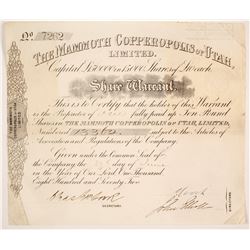 No 7262
THE MAMMOTH COPPEROPOLIS OF UTAH,
LIMITED.
Capital £150000 in 15000 Shares of £10 each
Share Warrant.
This is to Certify that the holder of this Warrant
is the Proprietor of fully paid up Ten Pound
Shares in THE MAMMOTH COPPEROPOLIS OF UTAH, LIMITED,
Numbered subject to the Articles of
Association and Regulations of the Company.
Given under the Common Seal of
the Company the day of June
in the Year of Our Lord One Thousand
Eight Hundred and Seventy Two
DIRECTORS
SECRETARY